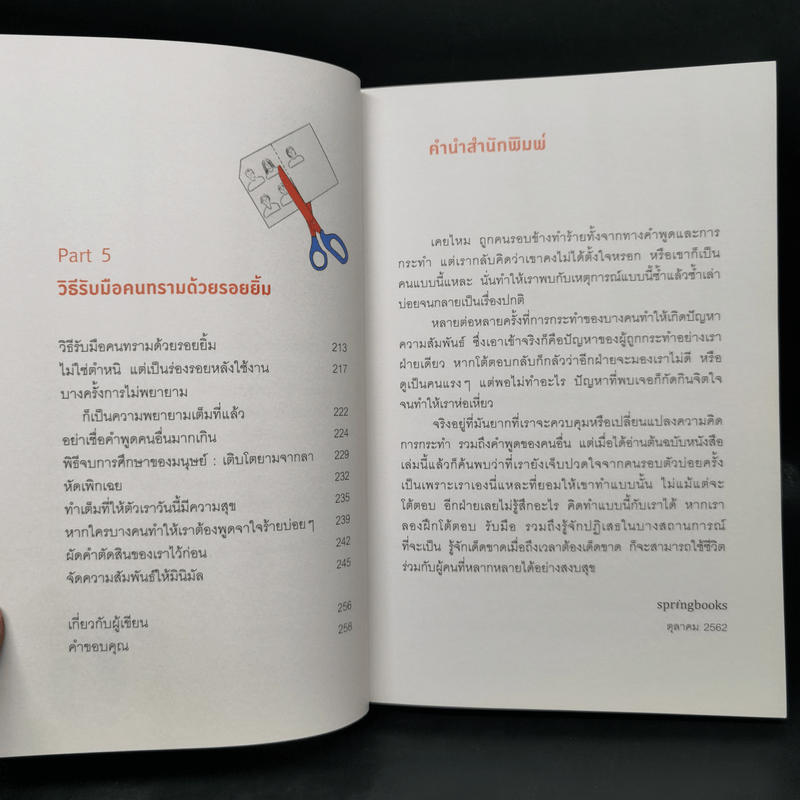 Part 5
วิธีรับมือคนทรามด้วยรอยยิ้ม
วิธีรับมือคนทรามด้วยรอยยิ้ม 213
ไม่ใช่ตำหนิ แต่เป็นร่องรอยหลังใช้งาน 217
บางครั้งการไม่พยายาม
ก็เป็นความพยายามเต็มที่แล้ว 222
อย่าเชื่อคำพูดคนอื่นมากเกิน 224
พิธีจบการศึกษาของมนุษย์ : เติบโตยามจากลา 229
หัดเพิกเฉย 232
ทำเต็มที่ให้ตัวเราวันนี้มีความสุข 235
หากใครบางคนทำให้เราต้องพูดจาใจร้ายบ่อยๆ 239
ผัดคำตัดสินของเราไว้ก่อน 242
จัดความสัมพันธ์ให้มินิมัล 245
เกี่ยวกับผู้เขียน 256
คำขอบคุณ 258
คำนำสำนักพิมพ์
เคยไหม ถูกคนรอบข้างทำร้ายทั้งจากทางคำพูดและการ
กระทำ แต่เรากลับคิดว่าเขาคงไม่ได้ตั้งใจหรอก หรือเขาก็เป็น
คนแบบนี้แหละ นั่นทำให้เราพบกับเหตุการณ์แบบนี้ซ้ำแล้วซ้ำเล่า
บ่อยจนกลายเป็นเรื่องปกติ
หลายต่อหลายครั้งที่การกระทำของบางคนทำให้เกิดปัญหา
ความสัมพันธ์ ซึ่งเอาเข้าจริงก็คือปัญหาของผู้ถูกกระทำอย่างเรา
ฝ่ายเดียว หากโต้ตอบกลับก็กลัวว่าอีกฝ่ายจะมองเราไม่ดี หรือ
ดูเป็นคนแรงๆ แต่พอไม่ทำอะไร ปัญหาที่พบเจอก็กัดกินจิตใจ
จนทำให้เราห่อเหี่ยว
จริงอยู่ที่มันยากที่เราจะควบคุมหรือเปลี่ยนแปลงความคิด
การกระทำ รวมถึงคำพูดของคนอื่น แต่เมื่อได้อ่านต้นฉบับหนังสือ
เล่มนี้แล้วก็ค้นพบว่าที่เรายังเจ็บปวดใจจากคนรอบตัวบ่อยครั้ง
เป็นเพราะเราเองนี่แหละที่ยอมให้เขาทำแบบนั้น ไม่แม้แต่จะ
โต้ตอบ อีกฝ่ายเลยไม่รู้สึกอะไร คิดทำแบบนี้กับเราได้ หากเรา
ลองฝึกโต้ตอบ รับมือ รวมถึงรู้จักปฏิเสธในบางสถานการณ์
ที่จะเป็น รู้จักเด็ดขาดเมื่อถึงเวลาต้องเด็ดขาด ก็จะสามารถใช้ชีวิต
ร่วมกับผู้คนที่หลากหลายได้อย่างสงบสุข
springbooks
ตุลาคม 2562